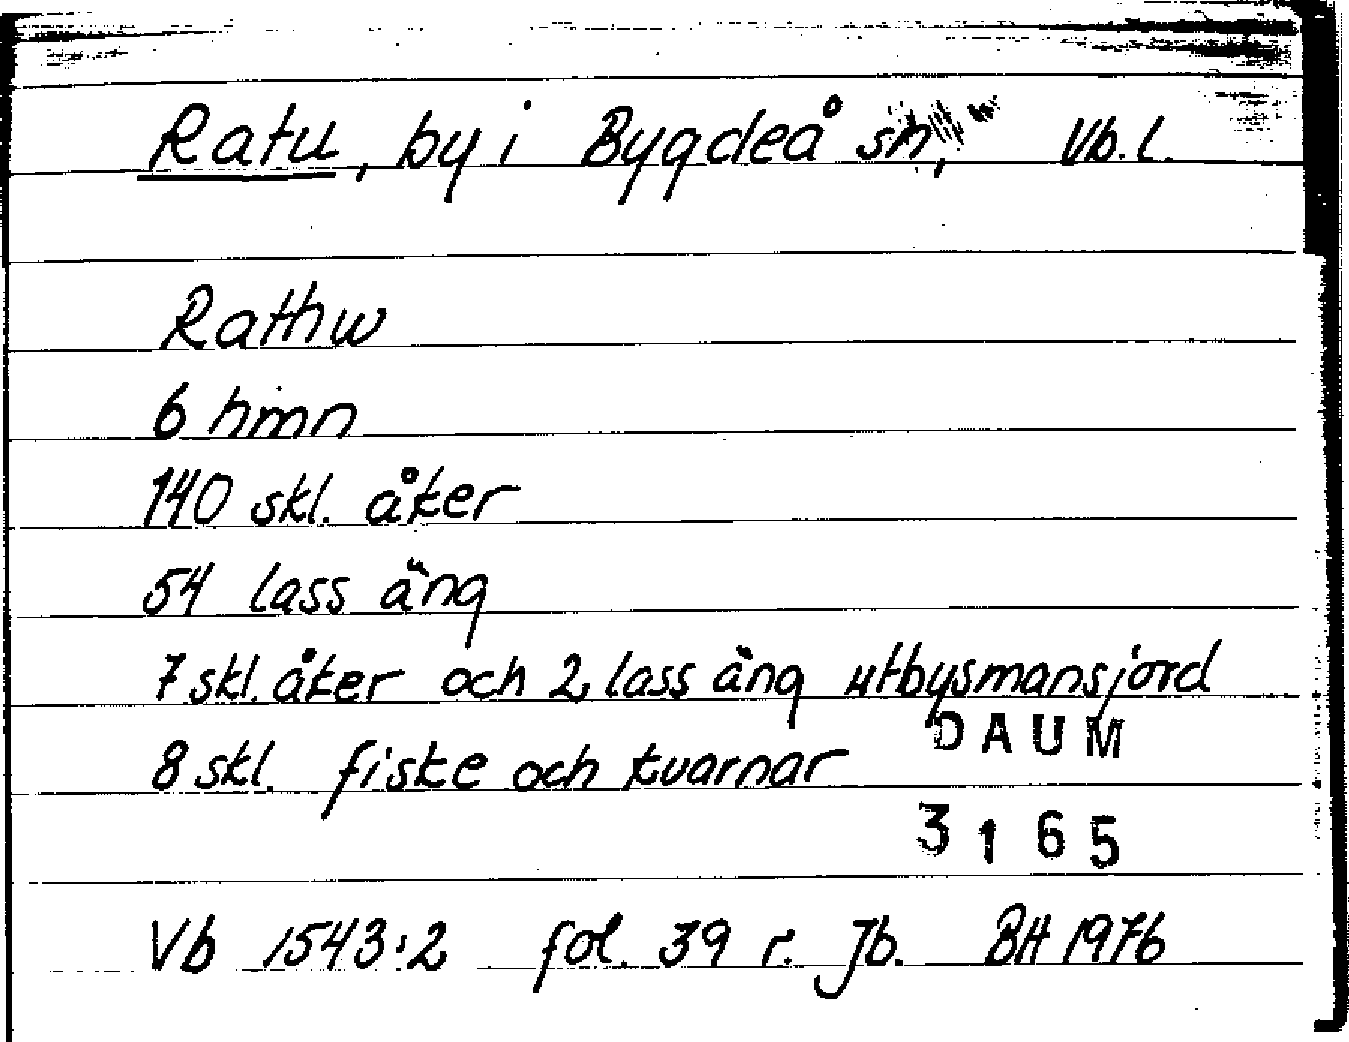 Ratu, by i Bygdeå sn, Vb. l.
Rathw
6 hmn
140 skl. åker
54 lass äng
7 skl. åker och 2 lass äng utbysmansjord
DAUM
8 skl. fiske och kvarnar
3165
Vb 1543:2 fol. 39 r. Jb. BH 1976